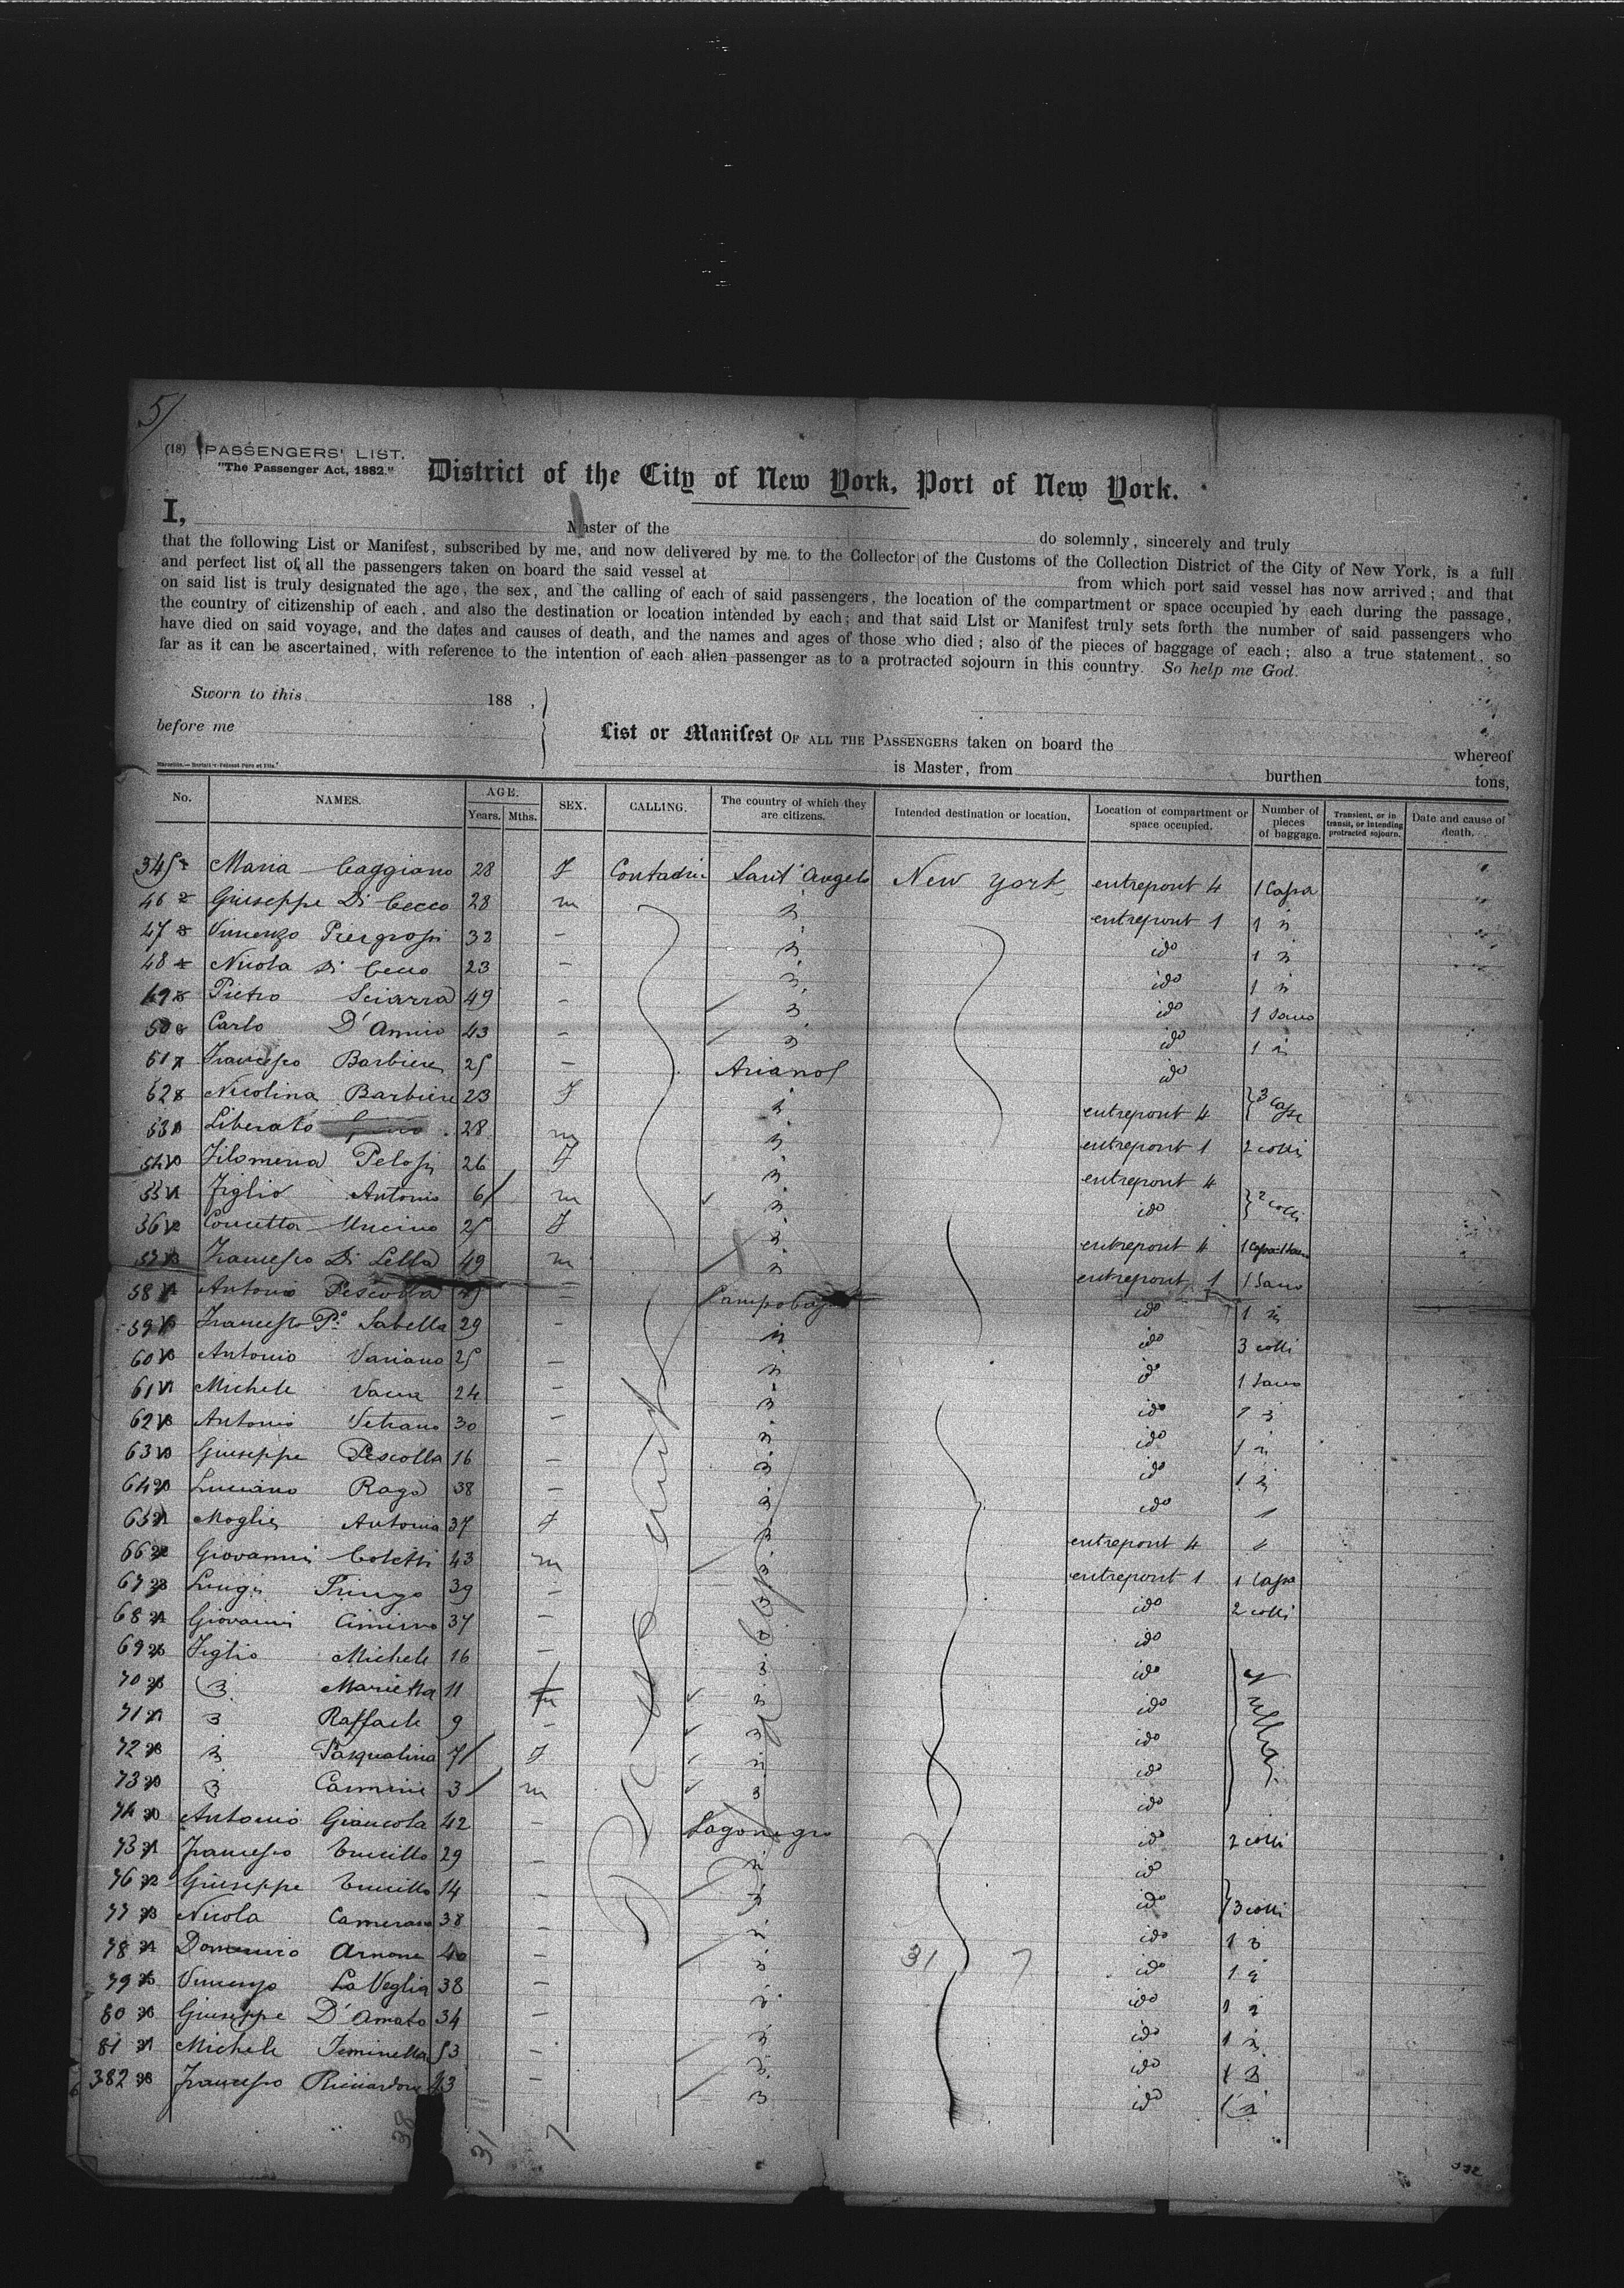 5/
(18) PASSENGERS' LIST.
"The Passenger Act, 1882."
District of the City of New York, Port of New York.
I, Master of the do solemnly, sincerely and truly
that the following List or Manifest, subscribed by me, and now delivered by me to the Collector of the Customs of the Collection District of the City of New York, is a full
and perfect list of all the passengers taken on board the said vessel at from which port said vessel has now arrived; and that
on said list is truly designated the age, the sex, and the calling of each of said passengers, the location of the compartment or space occupied by each during the passage,
the country of citizenship of each, and also the destination or location intended by each; and that said List or Manifest truly sets forth the number of said passengers who
have died on said voyage, and the dates and causes of death, and the names and ages of those who died; also of the pieces of baggage of each; also a true statement, so
far as it can be ascertained, with reference to the intention of each alien passenger as to a protracted sojourn in this country. So help me God.
Sworn to this 188 ,
before me
List or Manifest OF ALL THE PASSENGERS taken on board the whereof
is Master, from burthen tons,
No. NAMES. AGE. Years. Mths. SEX. CALLING. The country of which they are citizens. Intended destination or location. Location of compartment or space occupied. Number of pieces of baggage. Transient, or in transit, or intending protracted sojourn. Date and cause of death.
345 Maria Caggiano 28 f Contadini Sant'Angelo New York entrepont 4 1 Cassa
46 Giuseppe Di Cecco 28 m entrepont 1 1
47 Vincenzo Piergrossi 32 - ido 1
48 Nicola Di Cecco 23 - ido 1
49 Pietro Sciarra 49 - ido 1 Sacco
50 Carlo D'Amico 43 - ido 1
51 Francesco Barbiere 25 - Ariano ido
52 Nicolina Barbiere 23 f entrepont 4 3 Casse
53 Liberato 28 m entrepont 1 2 colli
54 Filomena Pelosi 26 f entrepont 4
55 Figlio Antonio 6 m ido 2 colli
56 Concetta 25 f entrepont 4
57 Francesco Di Lella 49 m entrepont 1 1 Sacco
58 Antonio Pescolla - Campobasso ido 1
59 Francesco P. Sabella 29 - ido 3 colli
60 Antonio Variano 25 - ido 1 Sacco
61 Michele 24 - ido 1
62 Antonio Vetrano 30 - ido 1
63 Giuseppe Pescolla 16 - ido 1
64 Luciano Rago 38 - ido 1
65 Moglie Antonia 37 f entrepont 4
66 Giovanni Coletti 43 m entrepont 1 1 Cassa
67 Luigi Pringo 39 - ido 2 colli
68 Giovanni Cimino 37 - ido
69 Figlio Michele 16 - ido
70 Marietta 11 ido
71 Raffaele 9 - ido
72 Pasqualina 7 f ido
73 Carmine 3 m ido
74 Antonio Giancola 42 - Lagonegro ido 2 colli
75 Francesco 29 - ido
76 Giuseppe 14 - ido 3 colli
77 Nicola Camerano 38 - ido 1
78 Domenico Arnone 40 - ido 1
79 Vincenzo La Veglia 38 - ido 1
80 Giuseppe D'Amato 34 - ido 1
81 Michele Iminella 53 - ido 1
382 Francesco Ricciardone 43 - ido 1
31 7
38 31 7